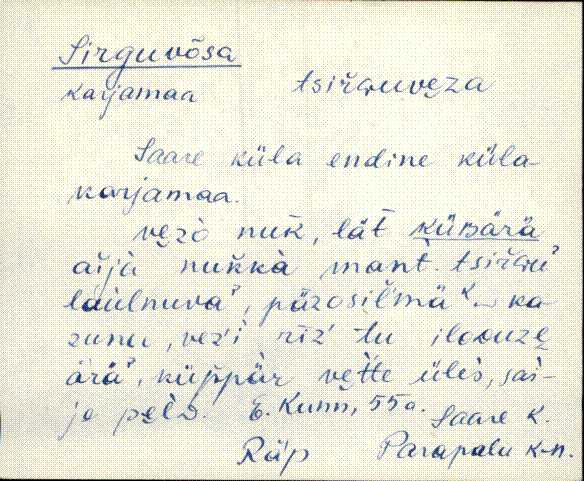 Sirguvõsa
karjamaa tsiŕguveza
Saare küla endine küla-
karjamaa.
vezò nuk̀, lät̀ küʙärä
aijà nuk̆kà mant̀. tsiŕgu̬ˀ
laulnuvaˀ, päzosil̆mäˀ ka
zunu, vezi tu
äräˀ, küp̆pär vet̆te üles, sai-
je E. Kunn, 55a. Saare k.
Räp Parapalu k-n.